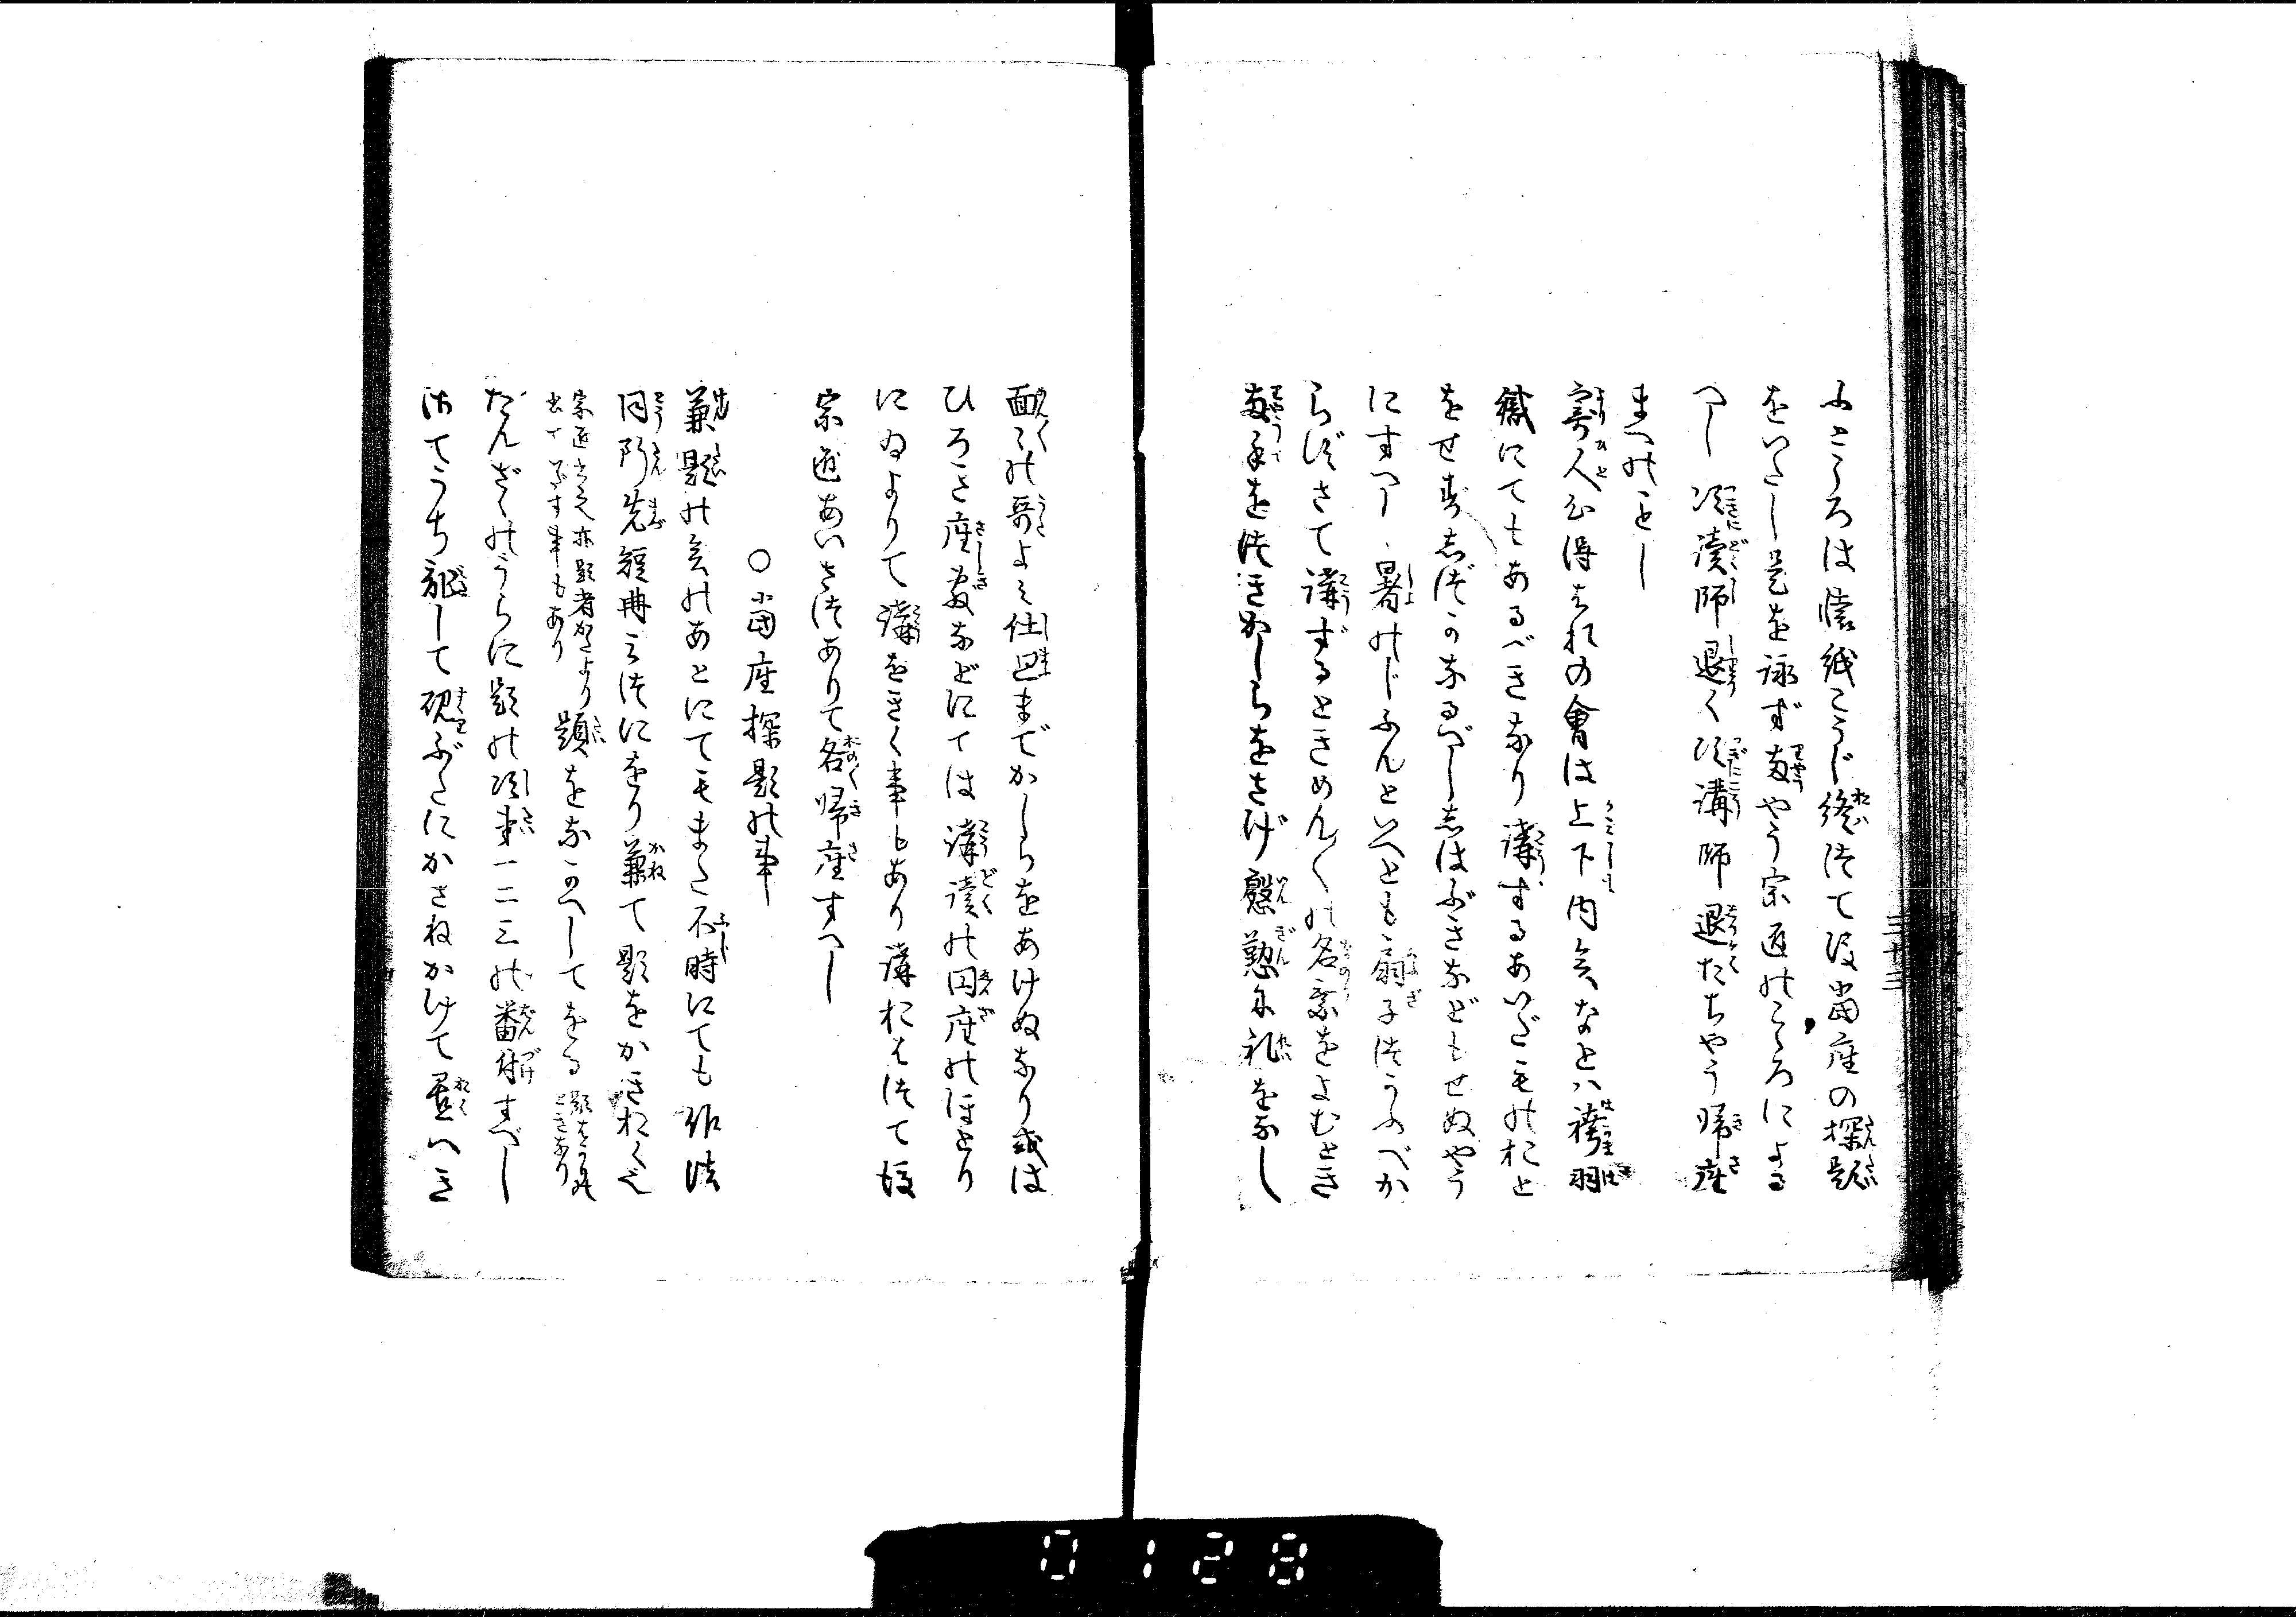 ふところは懐紙こうじ終つて後当座の探題
をいたし是を詠ず両やう宗匠のこゝろによる
べし次読師退く次講師退たちやう帰座
まへのごとし
寄人心得これの會は上下内会なとハ袴羽
織にてもあるべきなり講ずるあいだものおと
をせずしづかなるべし志はぶきなどもせぬやう
にすべし暑のじふんといへとも扇子つかふべか
らずさて講ずるときめん〱の名乗をよむとき
両手をつきかしらをさげ慇懃に礼をなし
三十三
面々の哥よみ仕廻までかしらをあけぬなり或は
ひろき座敷などにては講読の円座のほとり
にゐよりて講をきく事もあり講おはつて後
宗匠あいさつありて各帰座すべし
〇当座探題の事
兼題の会のあとにてもまた不時にても作法
同断先短冊三つにをり兼て題をかきおく也
宗匠出之亦題者かたより
出て下す事もあり
題をなかへしてをる
たんざくのうらに題の次第一二三の番付すべし
はてうち記して硯ぶたにかさねかけて置べき
0128